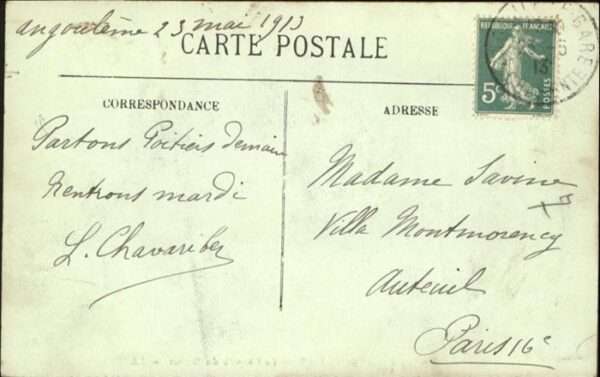 angoulême 23 mai 1913
CARTE POSTALE
RÉPUBLIQUE FRANÇAISE
5c
POSTES
GARE
CORRESPONDANCE
ADRESSE
Partons Poitiers demain
Rentrons mardi
L. Chavaribey
Madame Savine
Villa Montmorency
Auteuil
Paris 16e